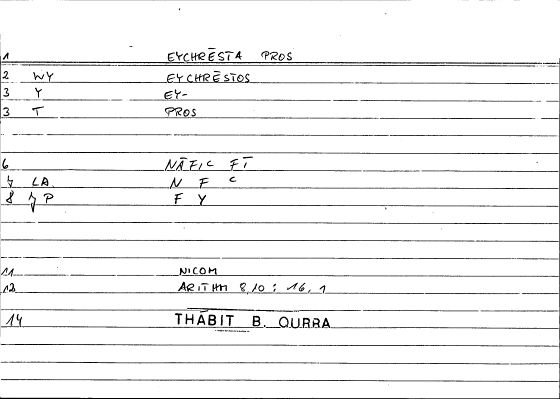 1 EYCHRĒSTA PROS
2 WY EYCHRĒSTOS
3 Y EY-
3 T PROS
6 NĀFIC FĪ
7 LA. N F C
8 7 P F Y
11 NICOM
12 ARITHM 8,10 : 16,1
14 THĀBIT B. QURRA